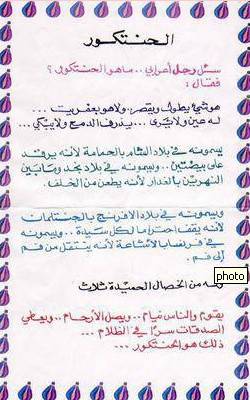 الحنتكور
سئل رجل أعرابي .. ما هو الحنتكور ؟
فقال :
هو شيء يطول ويقصر .. ولا هو بعفريت ...
له عين ولا يرى ... يذرف الدمع ولا يبكي ...
يسمونه في بلاد الشام بالحمامة لأنه يرقد
على بيضتين .. ويسمونه في بلاد نجد وما بين
النهرين بالغدار لأنه يطعن من الخلف .
ويسمونه في بلاد الافرنج بالجنتلمان
لأنه يقف احتراما لكل سيدة .. ويسمونه
في فرنسا بالاشاعة لأنه ينتقل من فم
إلى فم .
photo
وله من الخصال الحميدة ثلاث
يقوم والناس نيام .. ويصل الأرحام .. ويعطي
الصدقات سرا في الظلام ...
ذلك هو الحنتكور ...